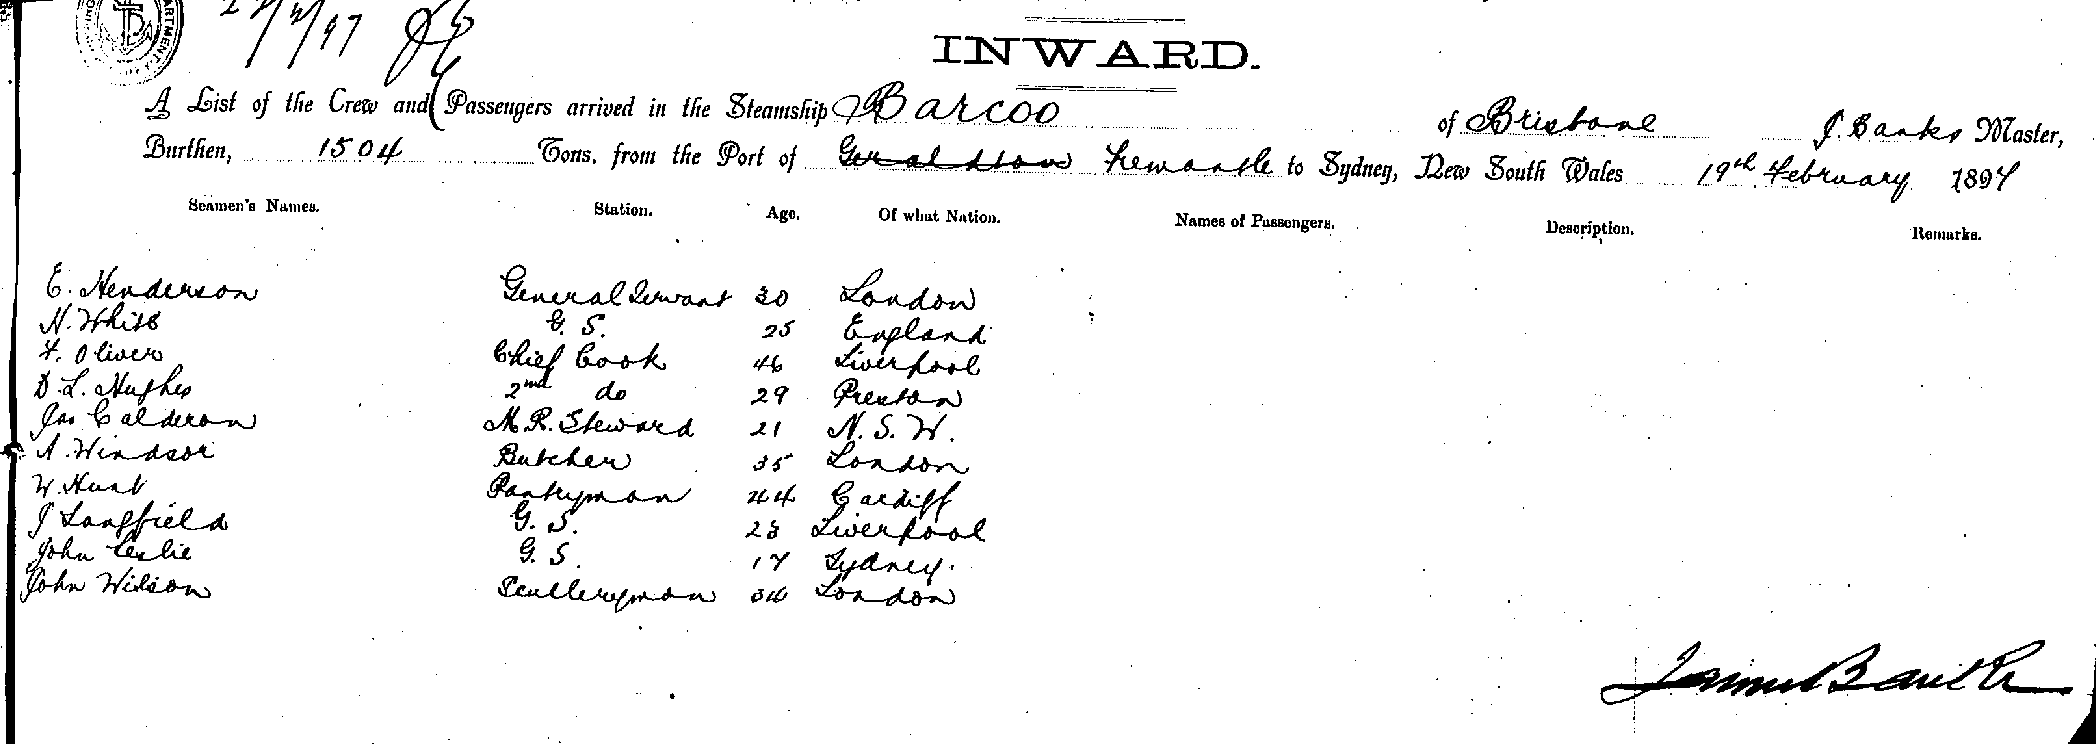 22/2/97
INWARD.
A List of the Crew and Passengers arrived in the Steamship Barcoo of Brisbane J. Banks Master,
Burthen, 1504 Tons, from the Port of Geraldton Fremantle to Sydney, New South Wales 19th February 1897
Seamen's Names. Station. Age. Of what Nation. Names of Passengers. Description. Remarks.
E. Henderson General Servant 30 London
H. White G. S. 25 England
F. Oliver Chief Cook 46 Liverpool
D. L. Hughes 2nd do 29 Preston
Jas Calderon M. R. Steward 21 N. S. W.
A. Windsor Butcher 35 London
W. Hunt Pantryman 44 Cardiff
J Langfield G. S. 23 Liverpool
John Leslie G. S. 17 Sydney.
John Wilson Sculleryman 34 London
James Banks